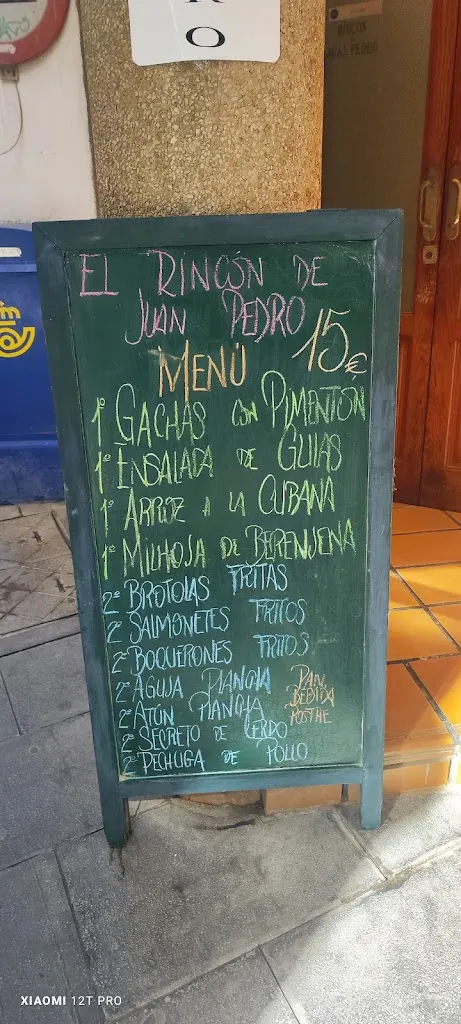 R
O
RINCÓN
PEDRO
EL RINCÓN DE
JUAN PEDRO
MENÚ 15€
1º GACHAS CON PIMENTÓN
1º ENSALADA DE GULAS
1º ARROZ A LA CUBANA
1º MILHOJA DE BERENJENA
2º BROTOLAS FRITAS
2º SALMONETES FRITOS
2º BOQUERONES FRITOS
2º AGUJA PLANCHA
2º ATÚN PLANCHA
2º SECRETO DE CERDO
2º PECHUGA DE POLLO
PAN,
BEBIDA
POSTRE
XIAOMI 12T PRO